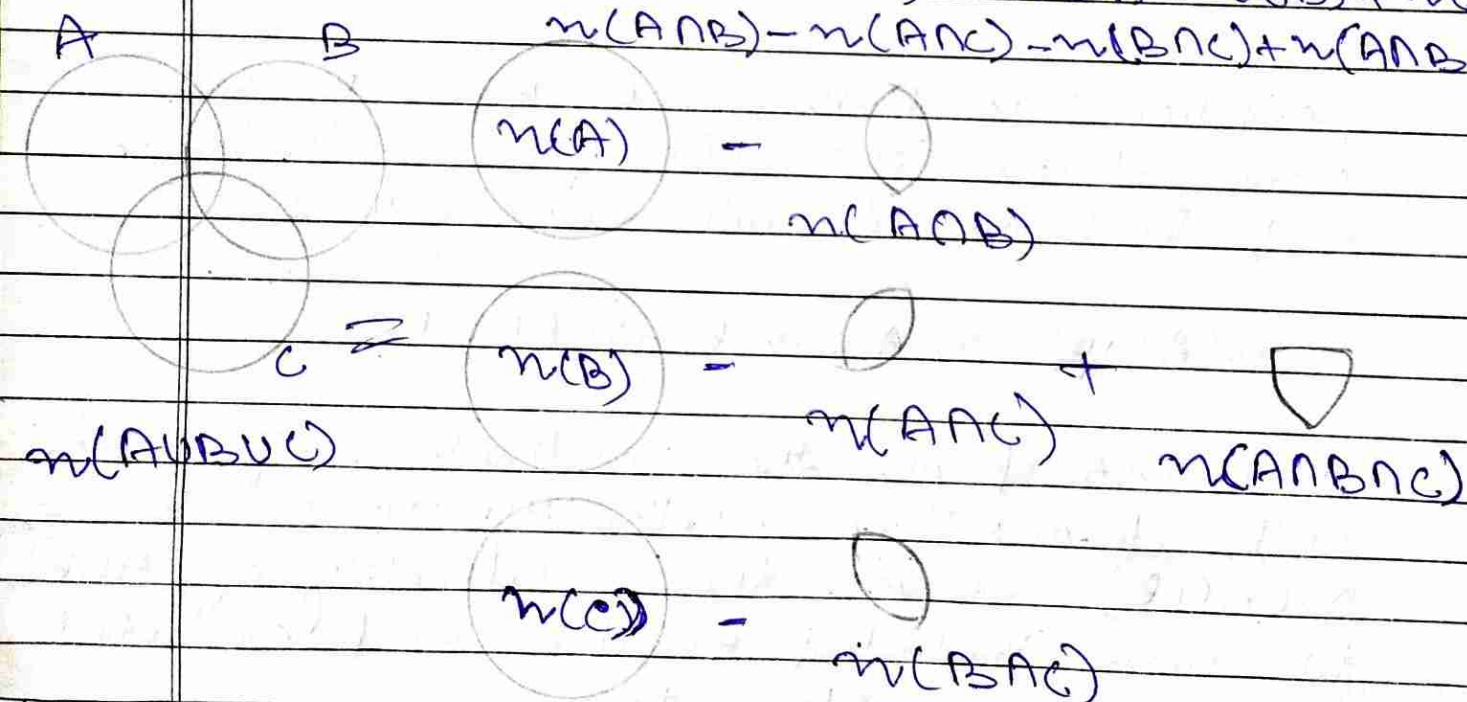 A B n(A∩B)-n(A∩C)-n(B∩C)+n(A∩B
n(A) -
n(A∩B)
C = n(B) - +
n(A∩C)
n(A∪B∪C) n(A∩B∩C)
n(C) -
n(B∩C)